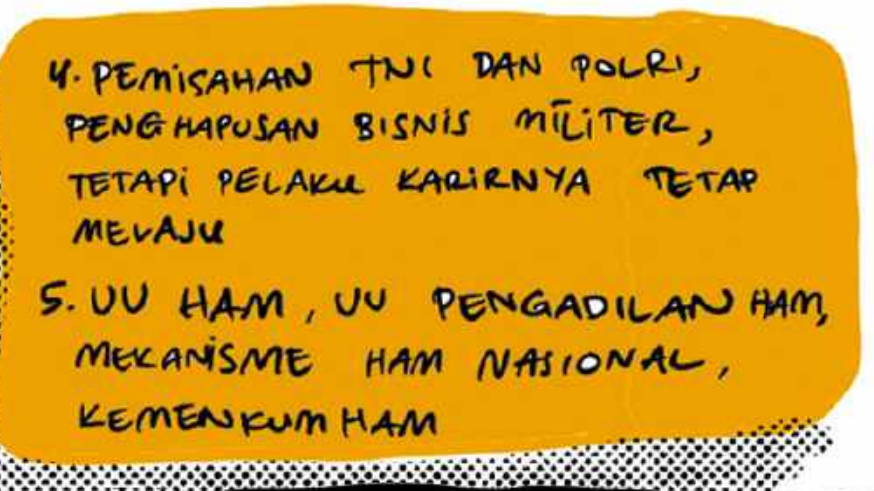 4. PEMISAHAN TNI DAN POLRI,
PENGHAPUSAN BISNIS MILITER,
TETAPI PELAKU KARIRNYA TETAP
MELAJU
5. UU HAM, UU PENGADILAN HAM,
MEKANISME HAM NASIONAL,
KEMENKUMHAM